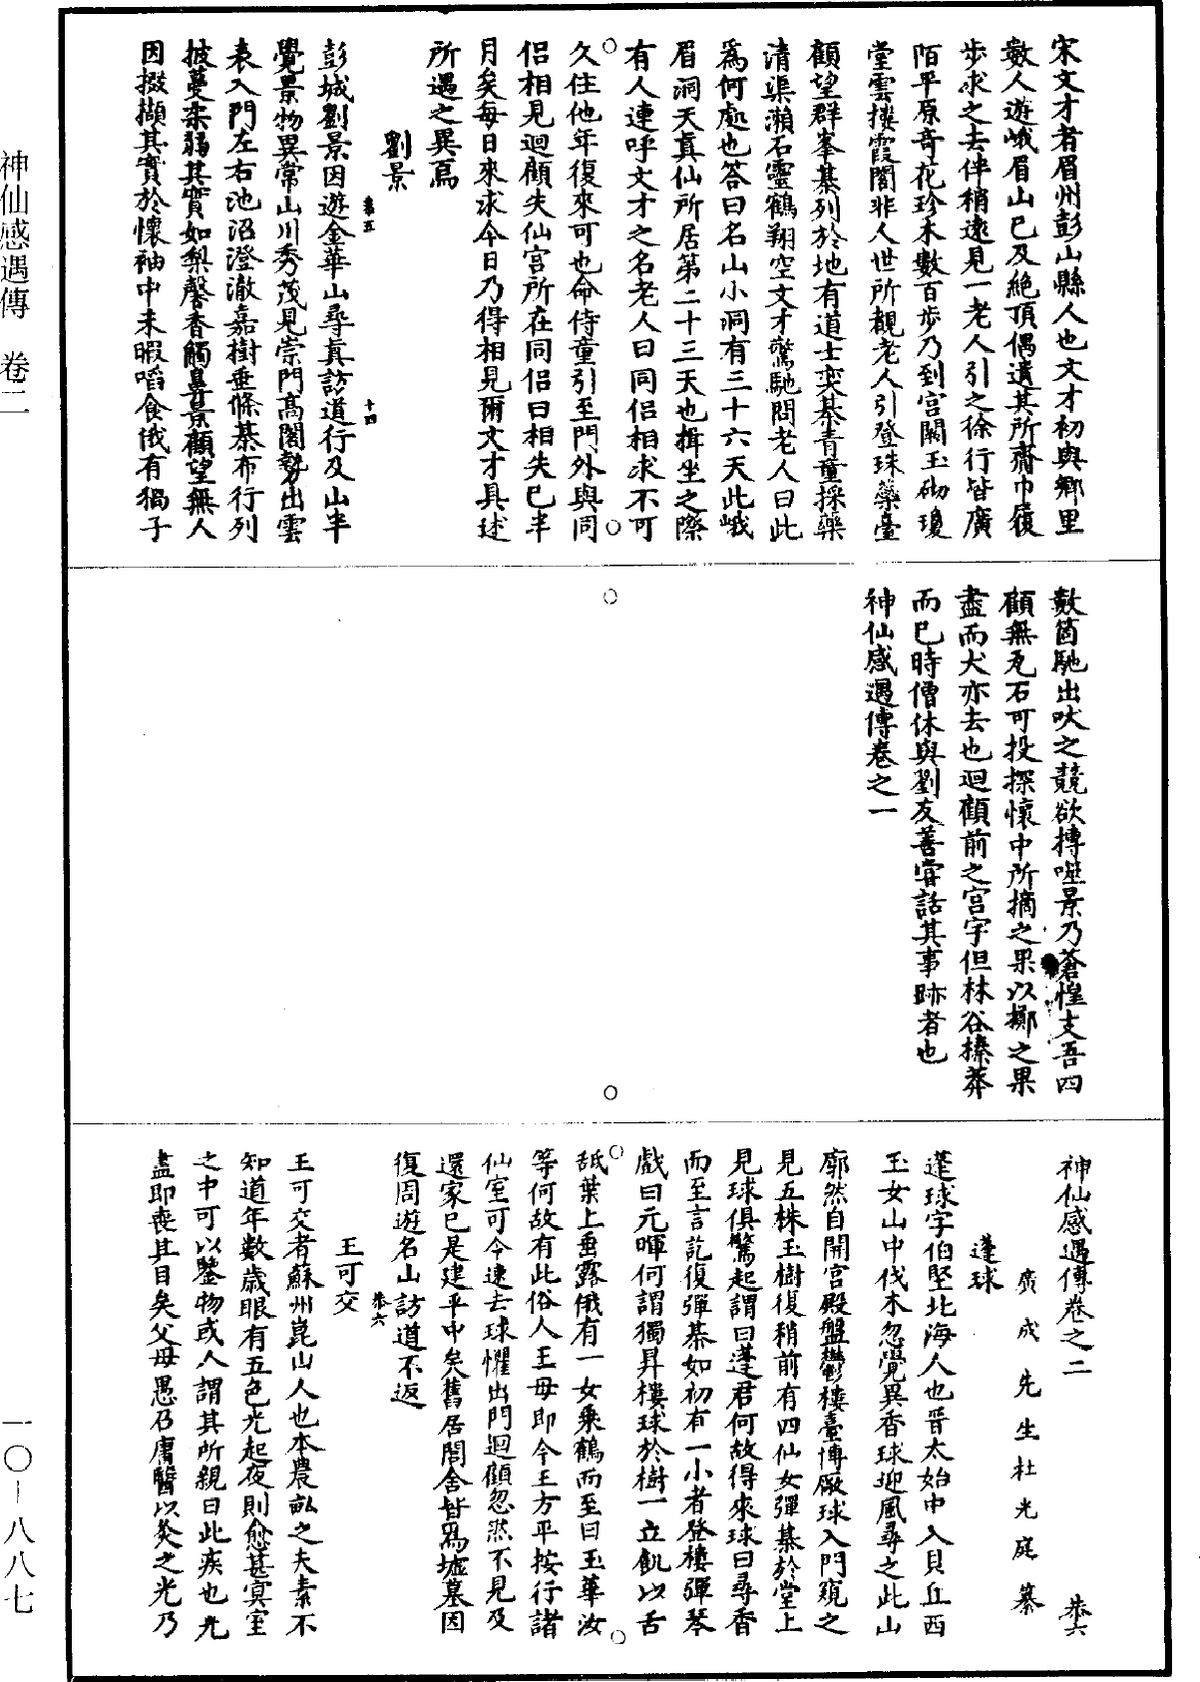 宋文才者眉州彭山縣人也文才初與鄉里
數人遊峨眉山已及絶頂偶遺其所齎巾履
步求之去伴稍遠見一老人引之徐行皆廣
陌平原奇花珍木數百步乃到宮闕玉砌瓊
堂雲樓霞閣非人世所覩老人引登珠蘂臺
顧望群峯棊列於地有道士奕棊青童採藥
清渠瀨石靈鶴翔空文才驚馳問老人曰此
爲何處也答曰名山小洞有三十六天此峨
眉洞天真仙所居第二十三天也揖坐之際
有人連呼文才之名老人曰同侶相求不可
久住他年復來可也命侍童引至門外與同
侶相見迴顧失仙宮所在同侶曰相失已半
月矣每日來求今日乃得相見爾文才具述
所遇之異焉
劉景
恭五
十四
彭城劉景因遊金華山尋真訪道行及山半
覺景物異常山川秀茂見崇門高閣勢出雲
表入門左右池沼澄澈嘉樹垂條棊布行列
披蔓柔弱其實如梨馨香觸鼻景顧望無人
因掇擷其實於懷袖中未暇啗食俄有猧子
數箇馳出吠之競欲摶噬景乃蒼惶支吾四
顧無瓦石可投探懷中所摘之果以擲之果
盡而犬亦去也迴顧前之宮宇但林谷榛莽
而已時僧休與劉友善嘗話其事跡者也
神仙感遇傳卷之一
神仙感遇傳卷之二
恭六
廣成先生杜光庭纂
蓬球
蓬球字伯堅北海人也晉太始中入貝丘西
玉女山中伐木忽覺異香球迎風尋之此山
廓然自開宮殿盤鬱樓臺博廠球入門窺之
見五株玉樹復稍前有四仙女彈棊於堂上
見球俱驚起謂曰蓬君何故得來球曰尋香
而至言訖復彈棊如初有一小者登樓彈琴
戲曰元暉何謂獨昇樓球於樹一立飢以舌
舐葉上垂露俄有一女乘鶴而至曰玉華汝
等何故有此俗人王母即令王方平按行諸
仙室可令速去球懼出門迴顧忽然不見及
還家已是建平中矣舊居閭舍皆爲墟墓因
復周遊名山訪道不返
恭六
王可交
王可交者蘇州崑山人也本農畝之夫素不
知道年數歲眼有五色光起夜則愈甚冥室
之中可以鑒物或人謂其所親曰此疾也光
盡即喪其目矣父母愚乃庸醫以灸之光乃
神仙感遇傳　卷二
一〇－八八七